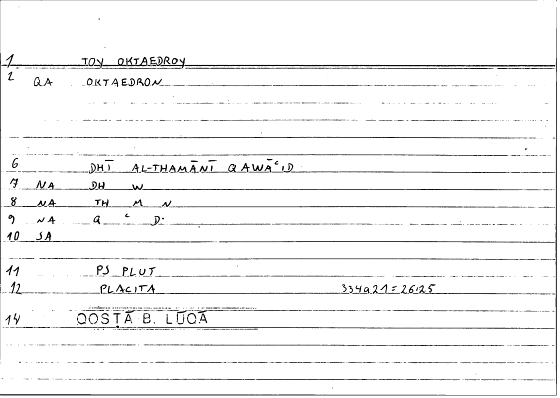 1 TOY OKTAEDROY
2 QA OKTAEDRON
6 DHĪ AL-THAMĀNĪ QAWĀʿID
7 NA DH W
8 NA TH M N
9 NA Q ʿ D
10 SA
11 PS PLUT
12 PLACITA 334a21=26,25
14 QOSṬĀ B. LŪQĀ